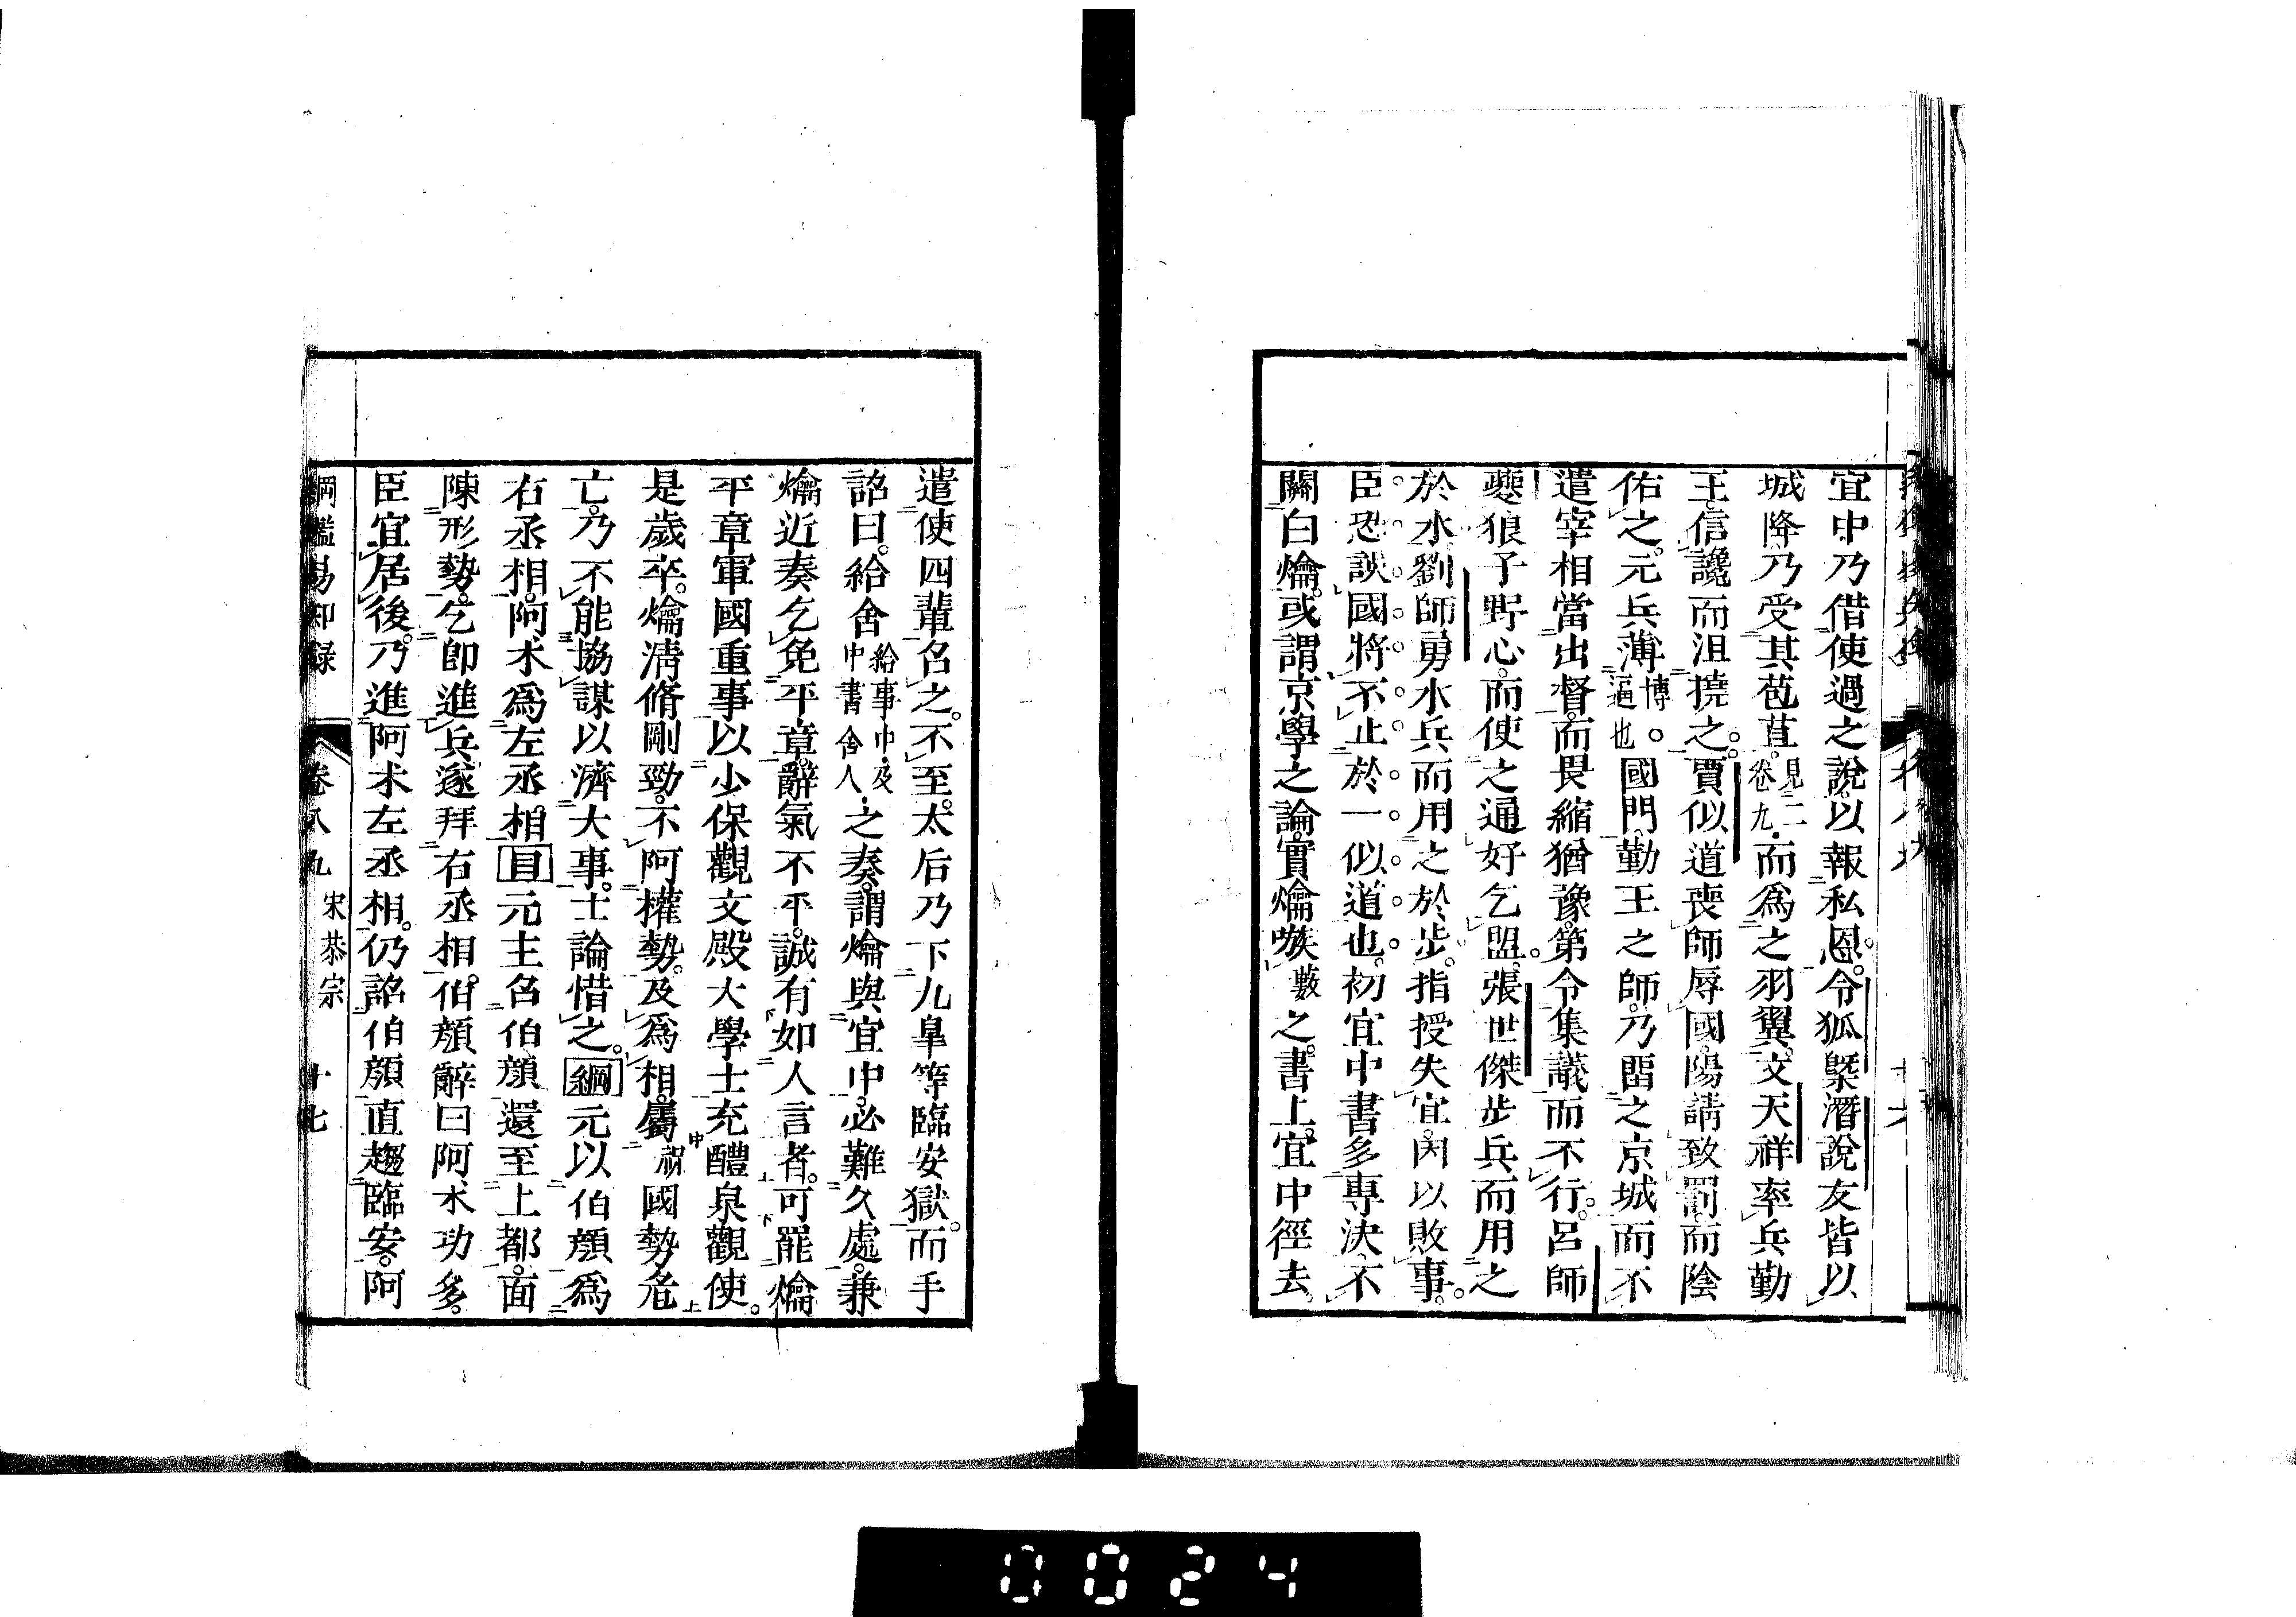 宜中乃借使過之說以報私恩令狐㮣潛說友皆以
城降乃受其苞苴見二卷九而爲之羽翼文天祥率兵勤
王信讒而沮撓之賈似道喪師辱國陽請致罰而陰
佑之元兵薄博逼也國門勤王之師乃畱之京城而不
遣宰相當出督而畏縮猶豫第令集議而不行呂師
夔狼子野心而使之通好乞盟張世傑步兵而用之
於水劉師勇水兵而用之於步指授失宜因以敗事
臣恐誤國將不止於一似道也初宜中書多專決不
關白爚或謂京學之論實爚嗾藪之書上宜中徑去
遣使四輩召之不至太后乃下九皐等臨安獄而手
詔曰給舍給事中及中書舍人之奏謂爚與宜中必難久處兼
爚近奏乞免平章辭氣不平誠有如人言者可罷爚
平章軍國重事以少保觀文殿大學士充醴泉觀使
是歲卒爚淸脩剛勁不阿權勢及爲相屬祝國勢危
亡乃不能協謀以濟大事士論惜之綱元以伯顏爲
右丞相阿朮爲左丞相目元主召伯顏還至上都面
陳形勢乞卽進兵遂拜右丞相伯顏辭曰阿朮功多
臣宜居後乃進阿朮左丞相仍詔伯顏直趨臨安阿
綱鑑易知錄 卷八九 宋恭宗 十七
0024